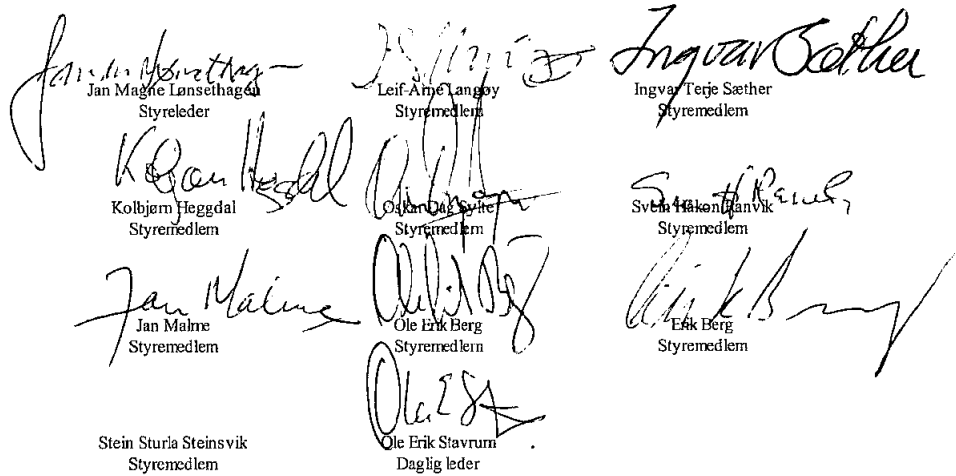 Jan Magne Lønsethagen
Styreleder
Leif-Arne Langøy
Styremedlem
Ingvar Sæther
Ingvar Terje Sæther
Styremedlem
Kolbjørn Heggdal
Styremedlem
Oskar Dag Sylte
Styremedlem
Svein Håkon Ranvik
Styremedlem
Jan Malme
Jan Malme
Styremedlem
Ole Erik Berg
Styremedlem
Erik Berg
Erik Berg
Styremedlem
Stein Sturla Steinsvik
Styremedlem
Ole Erik Stavrum
Daglig leder